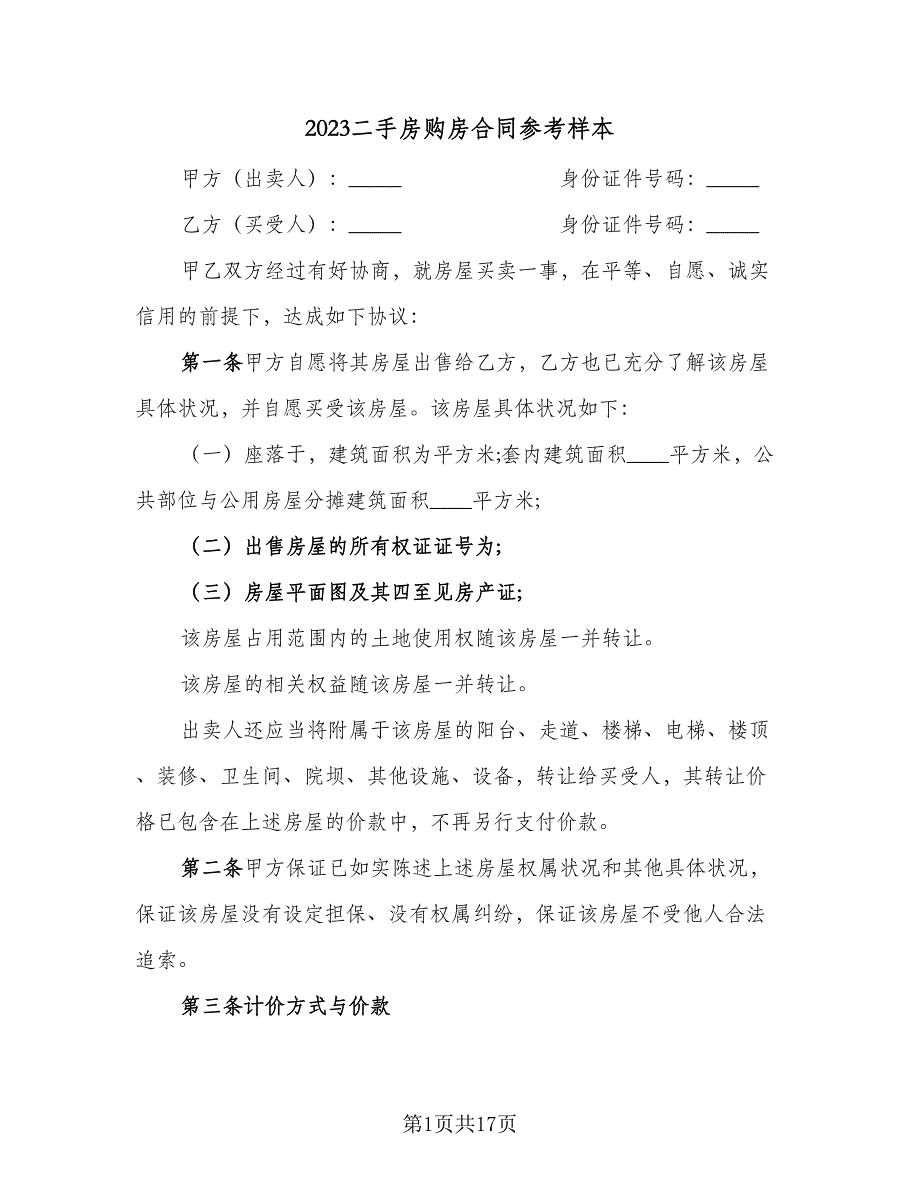 2023二手房购房合同参考样本
甲方（出卖人）：_____ 身份证件号码：_____
乙方（买受人）：_____ 身份证件号码：_____
甲乙双方经过有好协商，就房屋买卖一事，在平等、自愿、诚实
信用的前提下，达成如下协议：
第一条甲方自愿将其房屋出售给乙方，乙方也已充分了解该房屋
具体状况，并自愿买受该房屋。该房屋具体状况如下：
（一）座落于，建筑面积为平方米;套内建筑面积____平方米，公
共部位与公用房屋分摊建筑面积____平方米;
（二）出售房屋的所有权证证号为;
（三）房屋平面图及其四至见房产证;
该房屋占用范围内的土地使用权随该房屋一并转让。
该房屋的相关权益随该房屋一并转让。
出卖人还应当将附属于该房屋的阳台、走道、楼梯、电梯、楼顶
、装修、卫生间、院坝、其他设施、设备，转让给买受人，其转让价
格已包含在上述房屋的价款中，不再另行支付价款。
第二条甲方保证已如实陈述上述房屋权属状况和其他具体状况，
保证该房屋没有设定担保、没有权属纠纷，保证该房屋不受他人合法
追索。
第三条计价方式与价款
第1页共17页